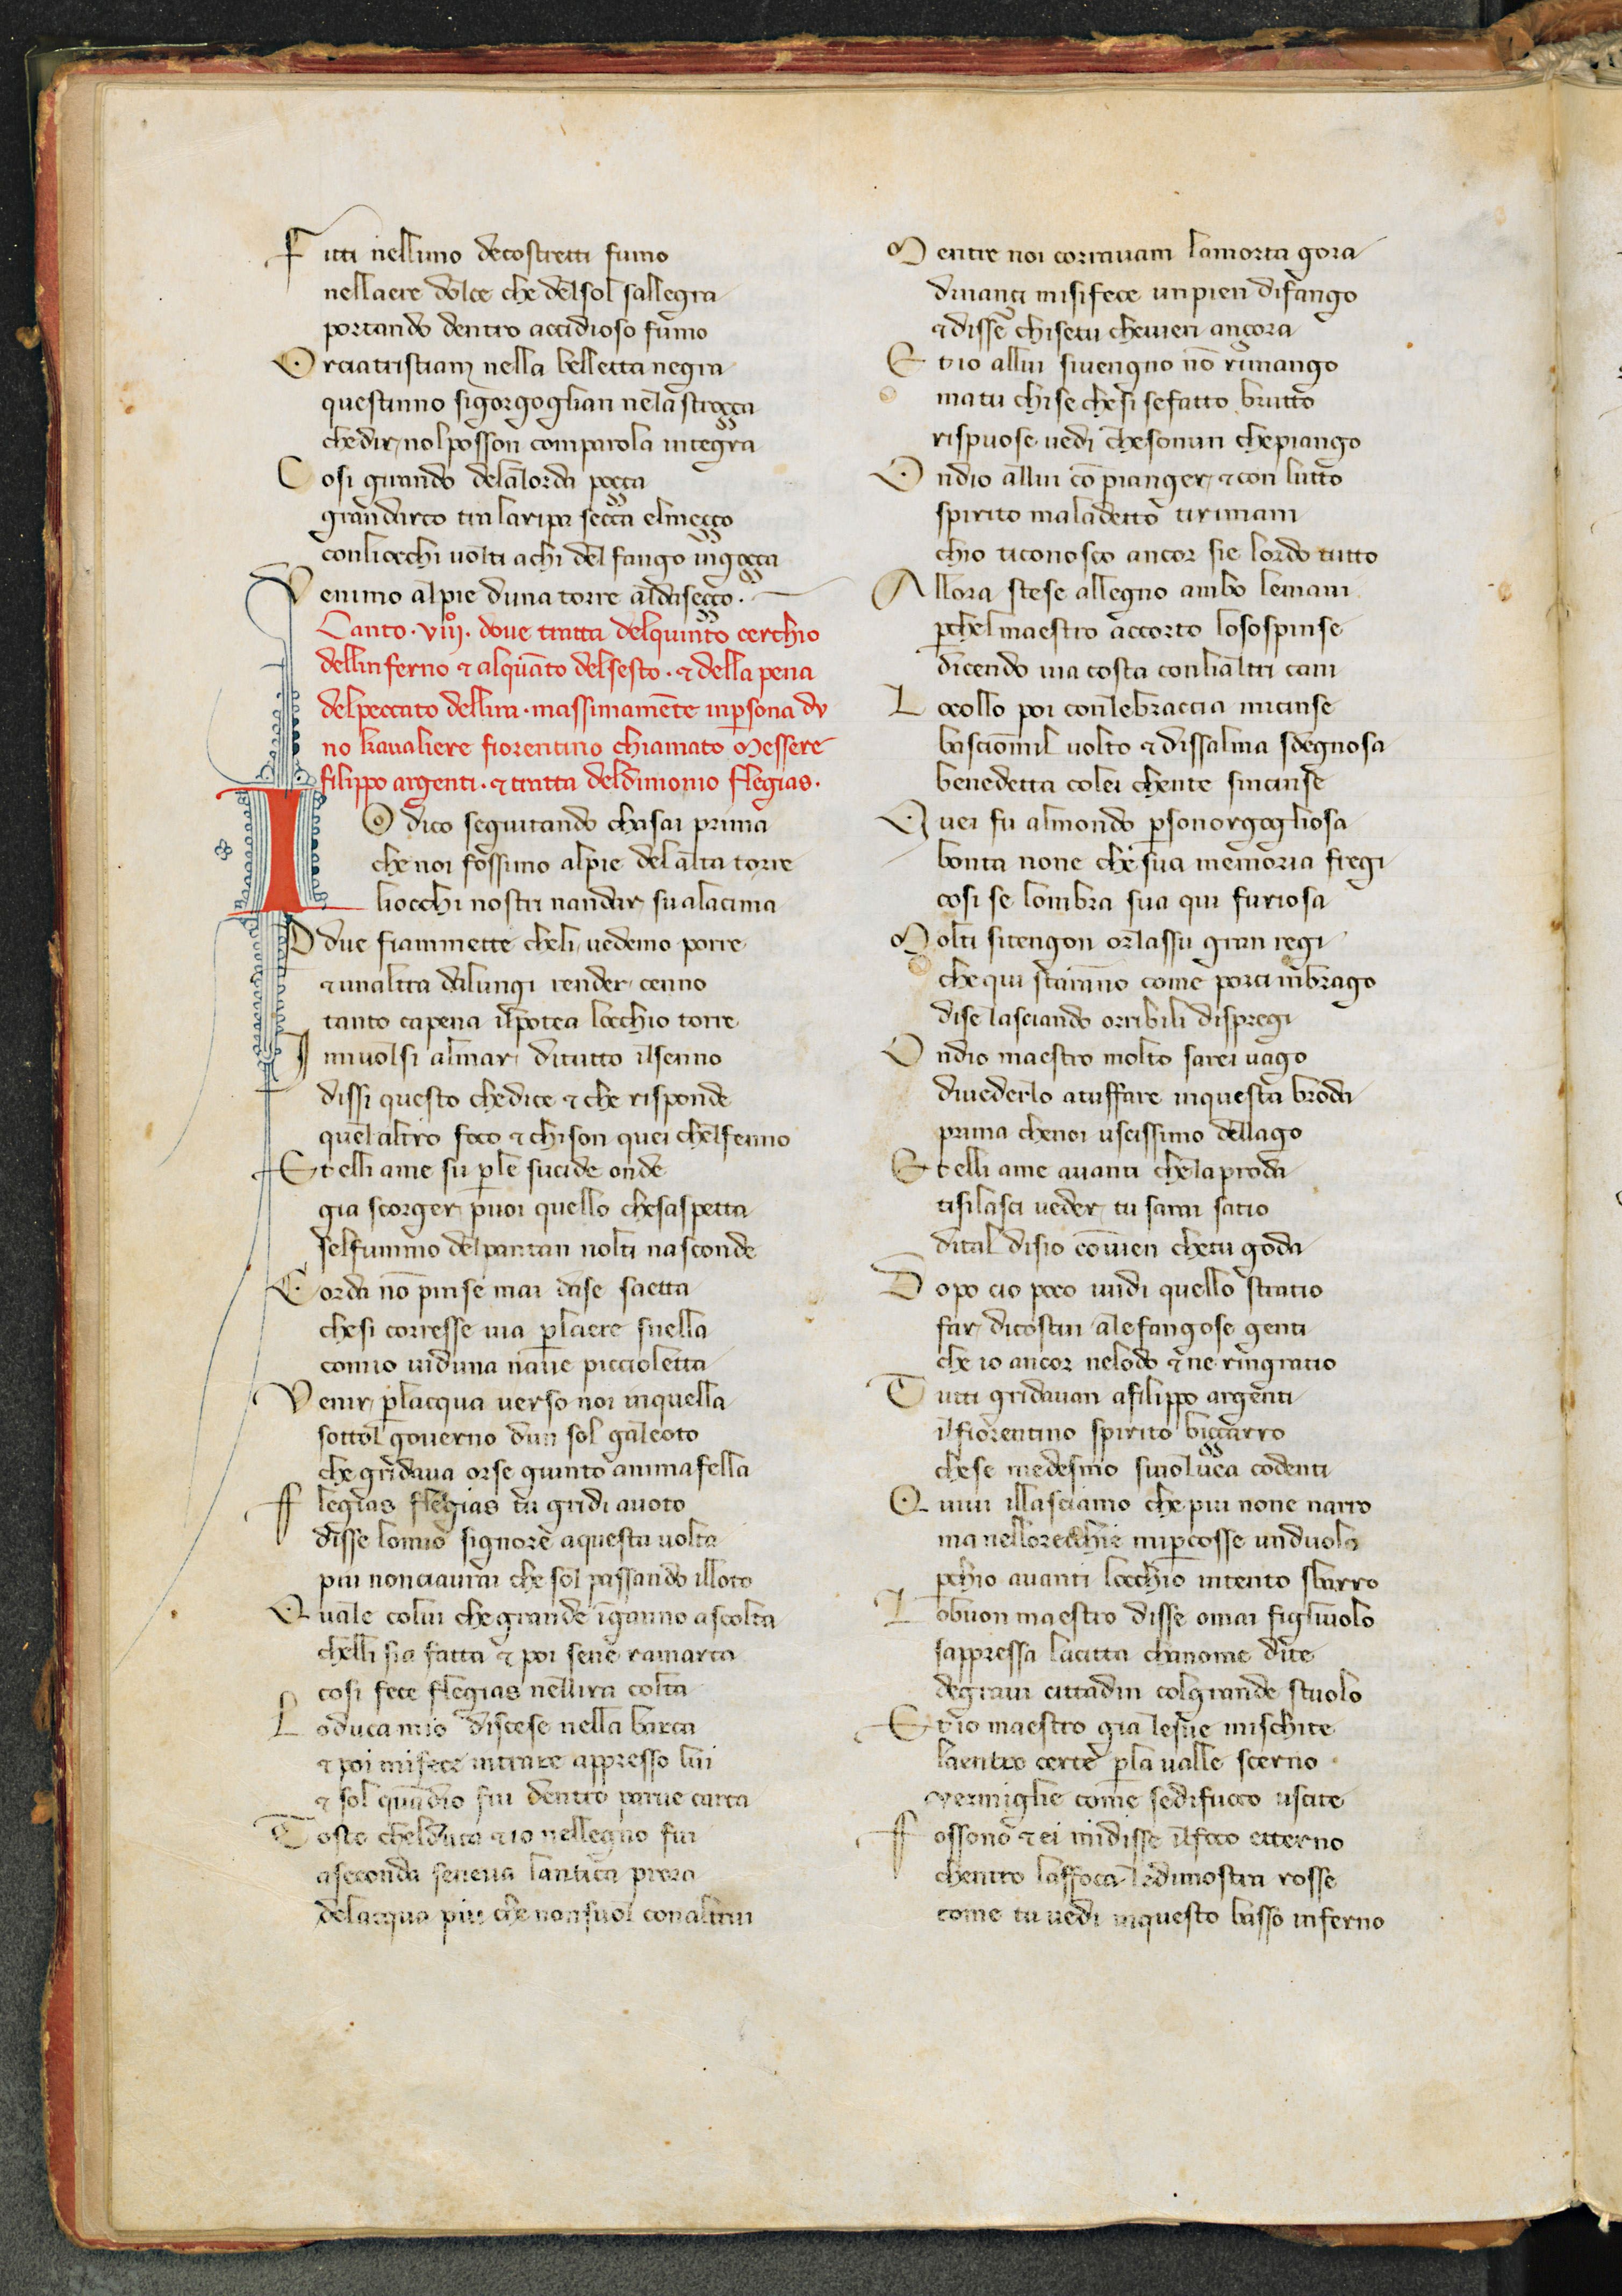 Fitti nellimo decostretti fumo
nellaere dolce che delsol sallegra
portando dentro accidioso fumo
Orciatristiam nella belletta negra
questinno sigorgoglian nela strozza
chedir nol posson comparola integra
Cosi girando dela lorda pozza
grandarco tra laripa secca elmezzo
conliocchi uolti achi del fango ingozza
Venimo alpie duna torre aldasezzo.
Canto .viijº. doue tratta delquinto cerchio
dellinferno & alquāto delsesto. & della pena
delpeccato dellira. massimamēte inpsona du
no kaualiere fiorentino chiamato Messere
filippo argenti. & tratta deldimonio flegias.
Io dico seguitando chasai prima
che noi fossimo alpie delalta torre
liocchi nostri nandar sualacima
P due fiammette cheli uedemo porre
& unaltra dalungi render cenno
tanto capena ilpotea locchio torre
I miuolsi almar ditutto ilsenno
dissi questo chedice & che risponde
quelaltro foco & chison quei chelfenno
Et elli ame su ple sucide onde
gia scorger puoi quello chesaspetta
selfummo delpantan nolti nasconde
Corda nō pinse mai dase saetta
chesi corresse uia plaere snella
comio uiduna naue piccioletta
Venir placqua uerso noi inquella
sottol gouerno dun sol galeoto
che gridaua orse giunto anima fella
Flegias flegias tu gridi auoto
disse lomio signore aquesta uolta
piu nonciaurai che sol passando illoto
Quale colui che grande īganno ascolta
chelli sia fatta & poi sene ramarca
cosi fece flegias nellira colta
Loduca mio discese nella barca
& poi mifece intrare appresso lui
& sol quādio fui dentro parue carca
Tosto chelduca & io nellegno fui
asecondi seneua lantica prora
delacqua piu che nonsuol conaltrui
Mentre noi corrauam lamorta gora
dinanzi misifece unpien difango
& disse chisetu cheuieni anzora
Et io allui siuengno nō rimango
matu chise chesi sefatto brutto
rispuose uedi chesonun chepiango
Ondio allui cō pianger & con lutto
spirito maladetto tirimani
chio ticonosco ancor sie lordo tutto
Allora stese allegno ambo lemani
pchelmaestro accorto lososspinse
dicendo uia costa conlialtri cani
Locollo poi conlebraccia micinse
basciommil uolto & dissalma sdegnosa
benedetta colei chente sincinse
Quei fu almondo psonorgogliosa
bonta none che sua memoria fregi
cosi se lombra sua qui furiosa
Molti sitengon orlassu gran regi
che qui staranno come porci inbrago
dise lasciando orribili dispregi
Ondio maestro molto sarei uago
diuederlo atuffare inquesta broda
prima chenoi uscissimo dellago
Et elli ame auanti chelaproda
tisilasci ueder tu sarai satio
dital disio cōuien chetu goda
Dopo cio poco uidi quello stratio
far dicostui alefangose genti
che io ancor nelodo & ne ringratio
Tutti gridauan afilippo argenti
ilfiorentino spirito bizzarro
chese medesmo siuoluea codenti
Quiui illasciamo che piu none narro
ma nellorecchie mipcosse unduolo
pchio auanti locchio intento sbarro
Lobuon maestro disse omai figliuolo
sappressa lacitta chanome dite
degraui cittadin colgrande stuolo
Et io maestro gia lesue mischite
laentro certe pla ualle scerno
uermiglie come sedifuoco uscite
Fossono & ei midisse ilfoco etterno
chentro laffoca ledimostra rosse
come tu uedi inquesto basso inferno